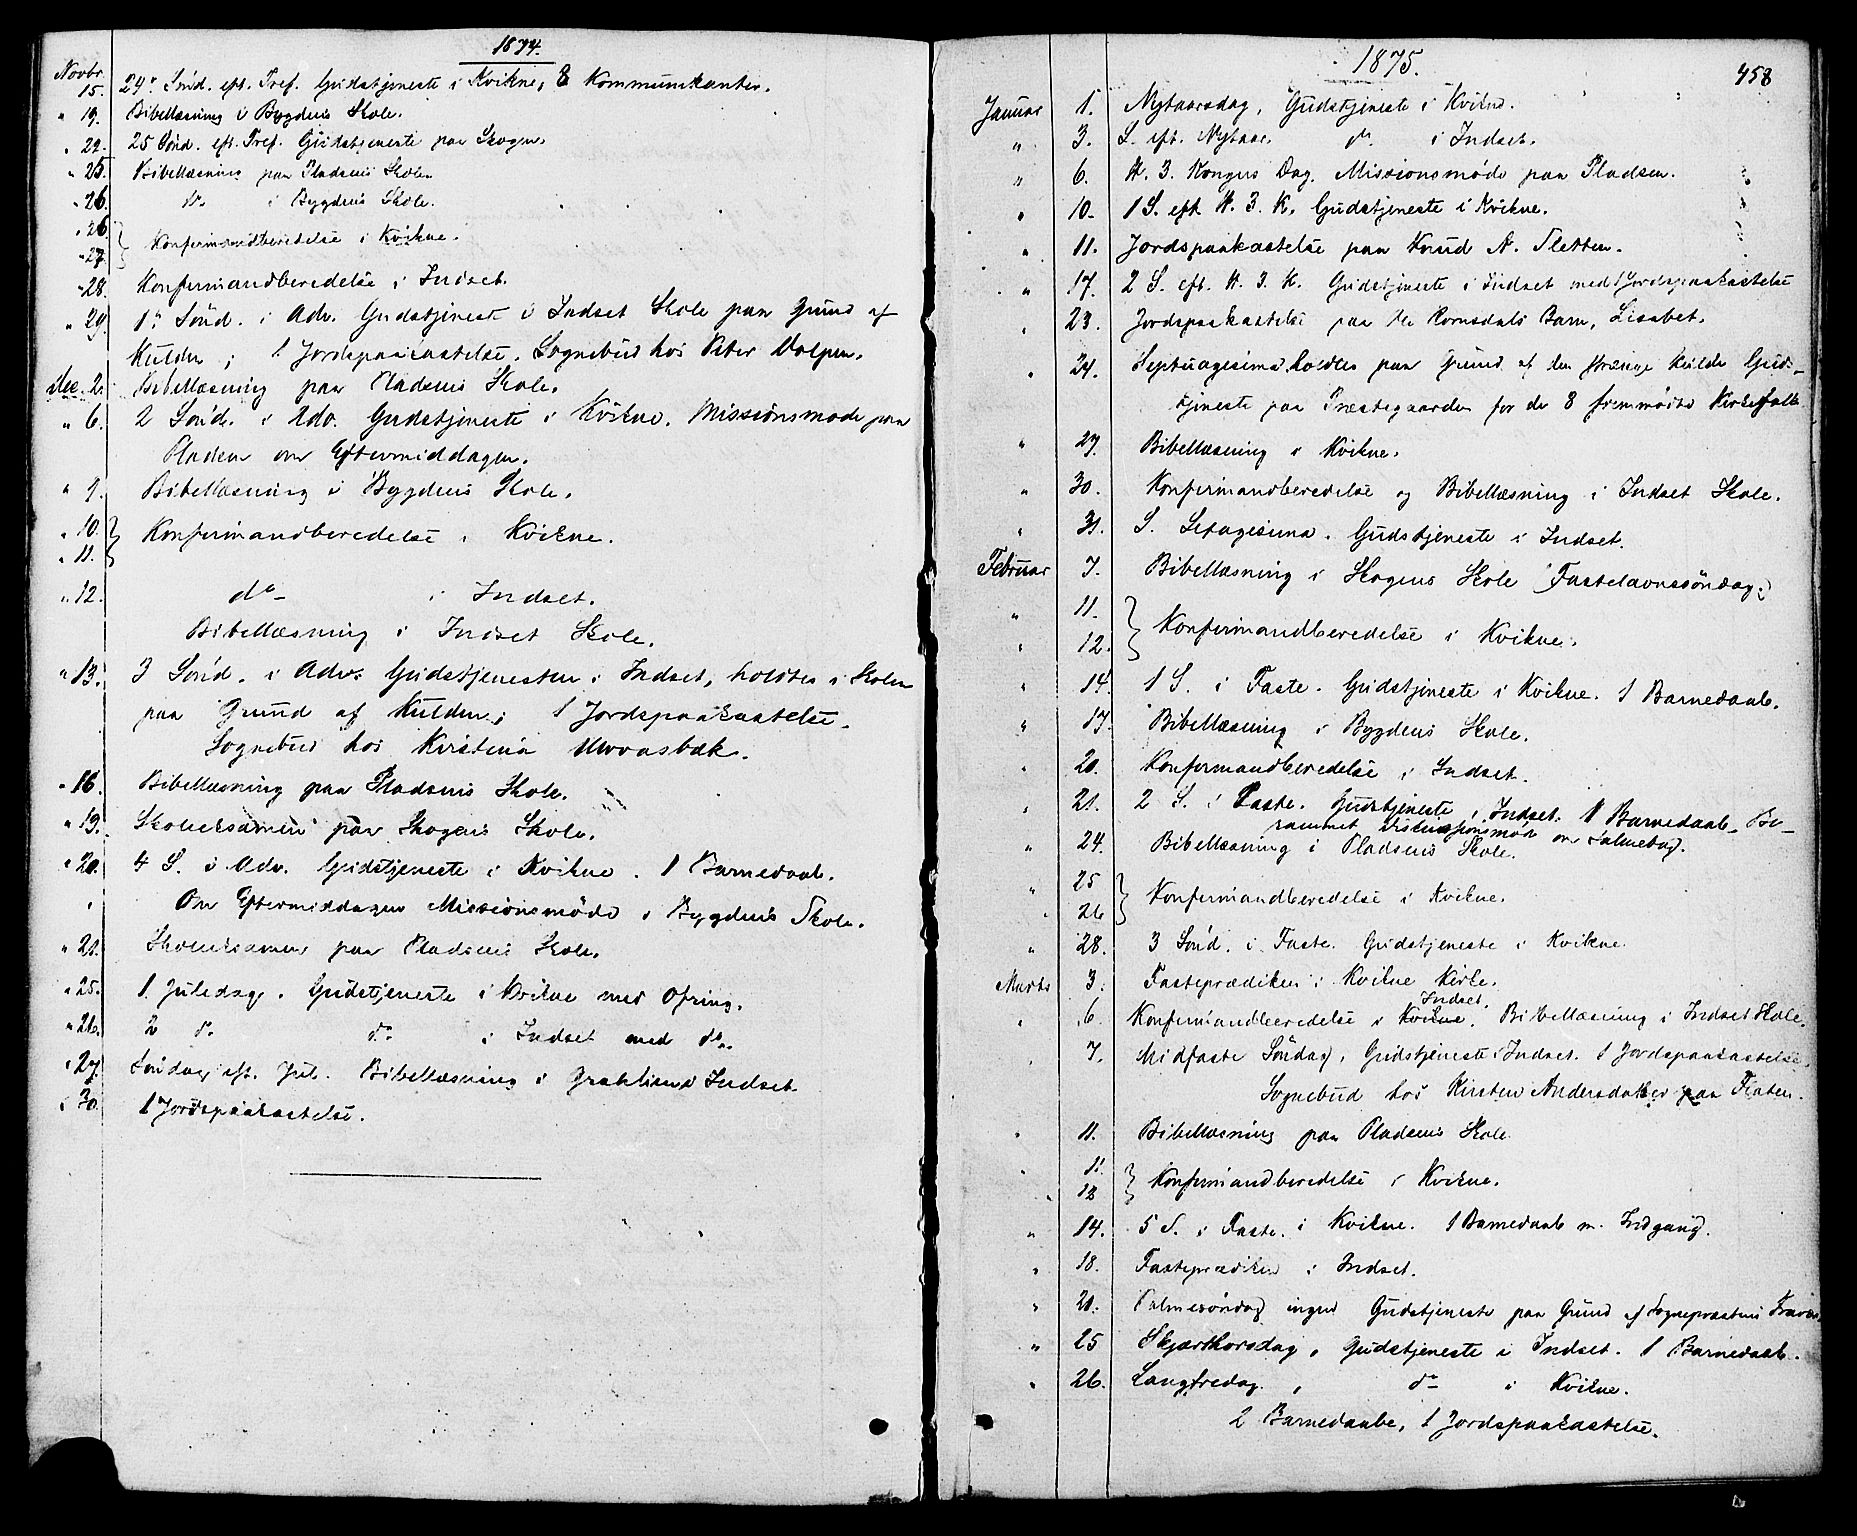 1874.
Novbr. 15. 24de Sönd. eft. Tref. Gudstjeneste i Kvikne, 8 Kommunikanter.
" 19. Bibellæsning i Bygdens Skole.
" 22. 25 Sönd. eft. Tref. Gudstjeneste paa Skogen.
" 25. Bibellæsning paa Pladsens Skole
" 26. do i Bygdens Skole.
" 26 } Konfirmandberedelse i Kvikne.
" 27. }
" 28. Konfirmandberedelse i Indset.
" 29. 1ste Sönd. i Adv. Gudstjeneste i Indset Skole paa Grund af
Kulden; 1 Jordspaakastelse. Sognebud hos Peter Volpen.
Dec. 2. Bibellæsning paa Pladsens Skole.
" 6. 2 Sönd. i Adv. Gudstjeneste i Kvikne. Missionsmöde paa
Pladsen om Eftermiddagen.
" 9. Bibellæsning i Bygdens Skole.
" 10. } Konfirmandberedelse i Kvikne.
" 11. }
" 12. do i Indset.
Bibellæsning i Indset Skole.
" 13. 3 Sönd. i Adv. Gudstjenesten i Indset, holdtes i Skolen
paa Grund af Kulden; 1 Jordspaakastelse.
Sognebud hos Kristina
" 16. Bibellæsning paa Pladsens Skole.
" 19. Skoleexamen paa Skogens Skole.
" 20. 4 S. i Adv. Gudstjeneste i Kvikne. 1 Barnedaab.
Om Eftermiddagen Missionsmöde i Bygdens Skole.
" 21. Skoleexamen paa Pladsens Skole.
" 25. 1. Juledag. Gudstjeneste i Kvikne med Ofring.
" 26. 2 do do i Indset med do.
" 27. Söndag eft. Jul. Bibellæsning i Indset
" 30. 1 Jordspaakastelse.
1875.
458
Januar 1. Nytaarsdag, Gudstjeneste i Kvikne.
" 3. S. eft. Nytaar. do i Indset.
" 6. H. 3. Kongers Dag. Missionsmöde paa Pladsen.
" 10. 1 S. eft. H. 3. K. Gudstjeneste i Kvikne.
" 11. Jordspaakastelse paa Knud A. Sletten.
" 17. 2 S. eft. H. 3. K. Gudstjeneste i Indset med 1 Jordspaakastelse
" 23. Jordspaakastelse paa Barn, Lisabet.
" 24. Septuagesima holdtes paa Grund af den strænge Kulde Guds-
tjeneste paa Præstegaarden for de 8 fremmødte Kirkefolk
" 27. Bibellæsning i Kvikne.
" 30. Konfirmandberedelse og Bibellæsning i Indset Skole.
" 31. S. Sexagesima. Gudstjeneste i Indset.
Februar 7. Bibellæsning i Skogens Skole (Fastelavnssöndag.)
" 11. } Konfirmandberedelse i Kvikne.
" 12. }
" 14. 1 S. i Faste. Gudstjeneste i Kvikne. 1 Barnedaab.
" 17. Bibellæsning i Bygdens Skole.
" 20. Konfirmandberedelse i Indset.
" 21. 2 S. i Faste. Gudstjeneste i Indset. 1 Barnedaab. Be-
rammet Diskussionsmöde om Salmebog.
" 24. Bibellæsning i Pladsens Skole.
" 25 } Konfirmandberedelse i Kvikne.
" 26 }
" 28. 3 Sönd. i Faste. Gudstjeneste i Kvikne.
Marts 3. Fasteprædiken i Kvikne Kirke.
Indset.
" 6. Konfirmandberedelse i Kvikne. Bibellæsning i Indset Skole.
" 7. Midfaste Söndag, Gudstjeneste i Indset. 1 Jordspaakastelse.
Sognebud hos Kirsten Andersdatter paa Floten.
" 11. Bibellæsning paa Pladsens Skole
" 11. } Konfirmandberedelse i Kvikne.
" 12 }
" 14. 5 S. i Faste. i Kvikne. 1 Barnedaab m. Indgang.
" 18. Fasteprædiken i Indset.
" 21. Palmesöndag ingen Gudstjeneste paa Grund af Sognepræstens
" 25 Skjærthorsdag, Gudstjeneste i Indset. 1 Barnedaab.
" 26. Langfredag, do i Kvikne.
2 Barnedaabe, 1 Jordspaakastelse.